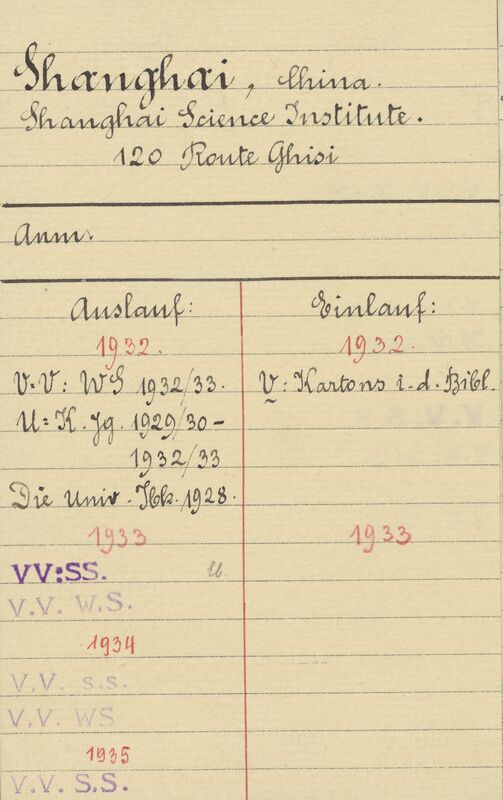 Shanghai, China.
Shanghai Science Institute.
120 Route Ghisi
Anm.
Auslauf:
1932.
V=V: WS 1932/33.
U=K. Jg. 1929/30-
1932/33
Die Univ. Hbk. 1928.
1933
VV:SS.
V.V. W.S.
1934
V.V. s.s.
V.V. WS
1935
V.V. S.S.
Einlauf:
1932.
V: Kartons i. d. Bibl.
1933